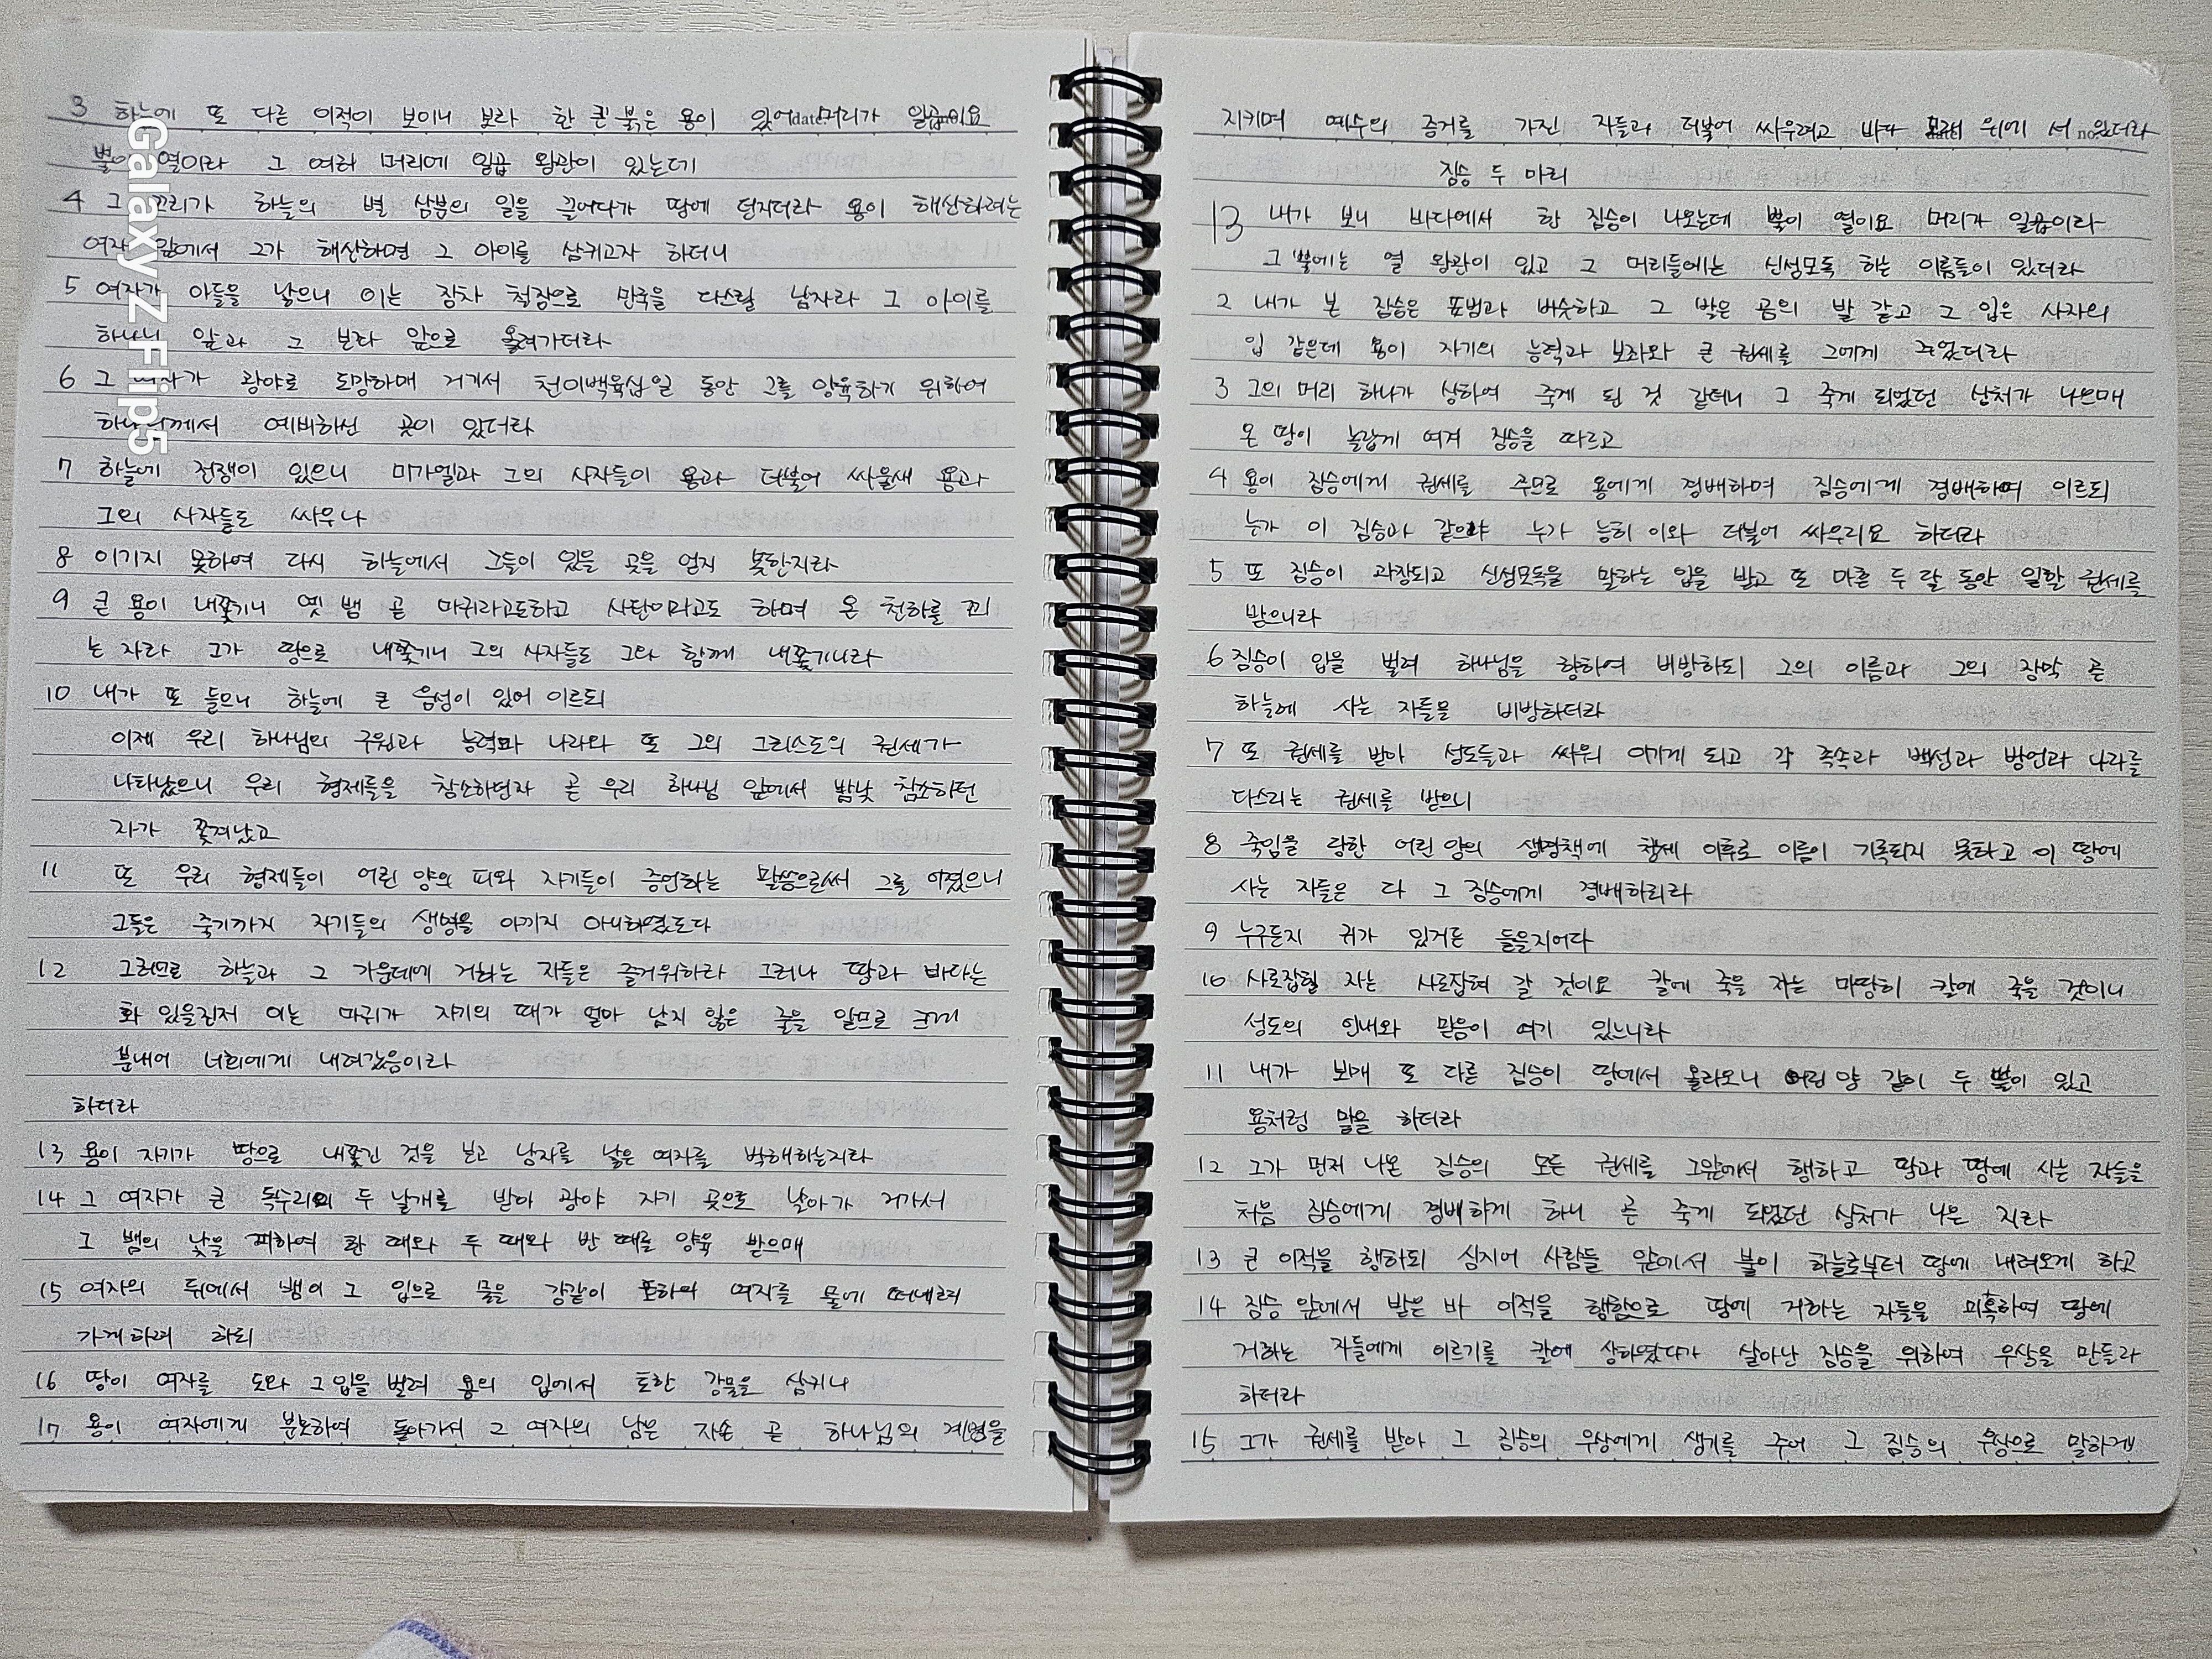 3 하늘에 또 다른 이적이 보이니 보라 한 큰 붉은 용이 있어 머리가 일곱이요
뿔이 열이라 그 여러 머리에 일곱 왕관이 있는데
4 그 꼬리가 하늘의 별 삼분의 일을 끌어다가 땅에 던지더라 용이 해산하려는
여자 앞에서 그가 해산하면 그 아이를 삼키고자 하더니
5 여자가 아들을 낳으니 이는 장차 철장으로 만국을 다스릴 남자라 그 아이를
하나님 앞과 그 보좌 앞으로 올려가더라
6 그 여자가 광야로 도망하매 거기서 천이백육십일 동안 그를 양육하기 위하여
하나님께서 예비하신 곳이 있더라
7 하늘에 전쟁이 있으니 미가엘과 그의 사자들이 용과 더불어 싸울새 용과
그의 사자들도 싸우나
8 이기지 못하여 다시 하늘에서 그들이 있을 곳을 얻지 못한지라
9 큰 용이 내쫓기니 옛 뱀 곧 마귀라고도하고 사탄이라고도 하며 온 천하를 꾀
는 자라 그가 땅으로 내쫓기니 그의 사자들도 그와 함께 내쫓기니라
10 내가 또 들으니 하늘에 큰 음성이 있어 이르되
이제 우리 하나님의 구원과 능력과 나라와 또 그의 그리스도의 권세가
나타났으니 우리 형제들을 참소하던자 곧 우리 하나님 앞에서 밤낮 참소하던
자가 쫓겨났고
11 또 우리 형제들이 어린 양의 피와 자기들이 증언하는 말씀으로써 그를 이겼으니
그들은 죽기까지 자기들의 생명을 아끼지 아니하였도다
12 그러므로 하늘과 그 가운데에 거하는 자들은 즐거워하라 그러나 땅과 바다는
화 있을진저 이는 마귀가 자기의 때가 얼마 남지 않은 줄을 알므로 크게
분내어 너희에게 내려갔음이라
하더라
13 용이 자기가 땅으로 내쫓긴 것을 보고 남자를 낳은 여자를 박해하는지라
14 그 여자가 큰 독수리의 두 날개를 받아 광야 자기 곳으로 날아가 거기서
그 뱀의 낯을 피하여 한 때와 두 때와 반 때를 양육 받으매
15 여자의 뒤에서 뱀이 그 입으로 물을 강같이 토하여 여자를 물에 떠내려
가게하려 하되
16 땅이 여자를 도와 그입을 벌려 용의 입에서 토한 강물을 삼키니
17 용이 여자에게 분노하여 돌아가서 그 여자의 남은 자손 곧 하나님의 계명을
지키며 예수의 증거를 가진 자들과 더불어 싸우려고 바다 모래 위에 서 있더라
짐승 두 마리
13 내가 보니 바다에서 한 짐승이 나오는데 뿔이 열이요 머리가 일곱이라
그 뿔에는 열 왕관이 있고 그 머리들에는 신성모독 하는 이름들이 있더라
2 내가 본 짐승은 표범과 비슷하고 그 발은 곰의 발 같고 그 입은 사자의
입 같은데 용이 자기의 능력과 보좌와 큰 권세를 그에게 주었더라
3 그의 머리 하나가 상하여 죽게 된 것 같더니 그 죽게 되었던 상처가 나으매
온 땅이 놀랍게 여겨 짐승을 따르고
4 용이 짐승에게 권세를 주므로 용에게 경배하며 짐승에게 경배하여 이르되
누가 이 짐승과 같으냐 누가 능히 이와 더불어 싸우리요 하더라
5 또 짐승이 과장되고 신성모독을 말하는 입을 받고 또 마흔 두 달 동안 일할 권세를
받으니라
6 짐승이 입을 벌려 하나님을 향하여 비방하되 그의 이름과 그의 장막 곧
하늘에 사는 자들을 비방하더라
7 또 권세를 받아 성도들과 싸워 이기게 되고 각 족속과 백성과 방언과 나라를
다스리는 권세를 받으니
8 죽임을 당한 어린 양의 생명책에 창세 이후로 이름이 기록되지 못하고 이 땅에
사는 자들은 다 그 짐승에게 경배하리라
9 누구든지 귀가 있거든 들을지어다
10 사로잡힐 자는 사로잡혀 갈 것이요 칼에 죽을 자는 마땅히 칼에 죽을 것이니
성도의 인내와 믿음이 여기 있느니라
11 내가 보매 또 다른 짐승이 땅에서 올라오니 어린 양 같이 두 뿔이 있고
용처럼 말을 하더라
12 그가 먼저 나온 짐승의 모든 권세를 그앞에서 행하고 땅과 땅에 사는 자들을
처음 짐승에게 경배하게 하니 곧 죽게 되었던 상처가 나은 자라
13 큰 이적을 행하되 심지어 사람들 앞에서 불이 하늘로부터 땅에 내려오게 하고
14 짐승 앞에서 받은 바 이적을 행함으로 땅에 거하는 자들을 미혹하여 땅에
거하는 자들에게 이르기를 칼에 상하였다가 살아난 짐승을 위하여 우상을 만들라
하더라
15 그가 권세를 받아 그 짐승의 우상에게 생기를 주어 그 짐승의 우상으로 말하게
Galaxy Z Flip5